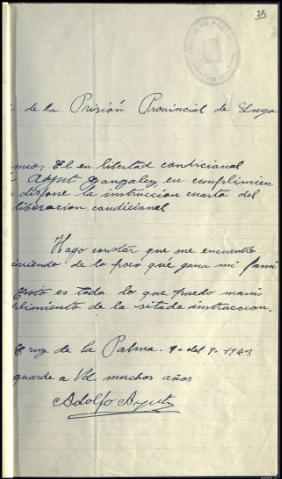 35
de la Prisión Provincial de Lugo
El en libertad condicional
Gonzalez, en cumplimien
dispone la instruccion cuarta del
liberacion condicional
Hago constar que me encuentro
viviendo de lo poco qué gana mi fami
Esto es todo lo que puedo mani
plimiento de la sitada instruccion.
Cruz de la Palma. 9- del 9- 1943
guarde a Vd. muchos años
Adolfo